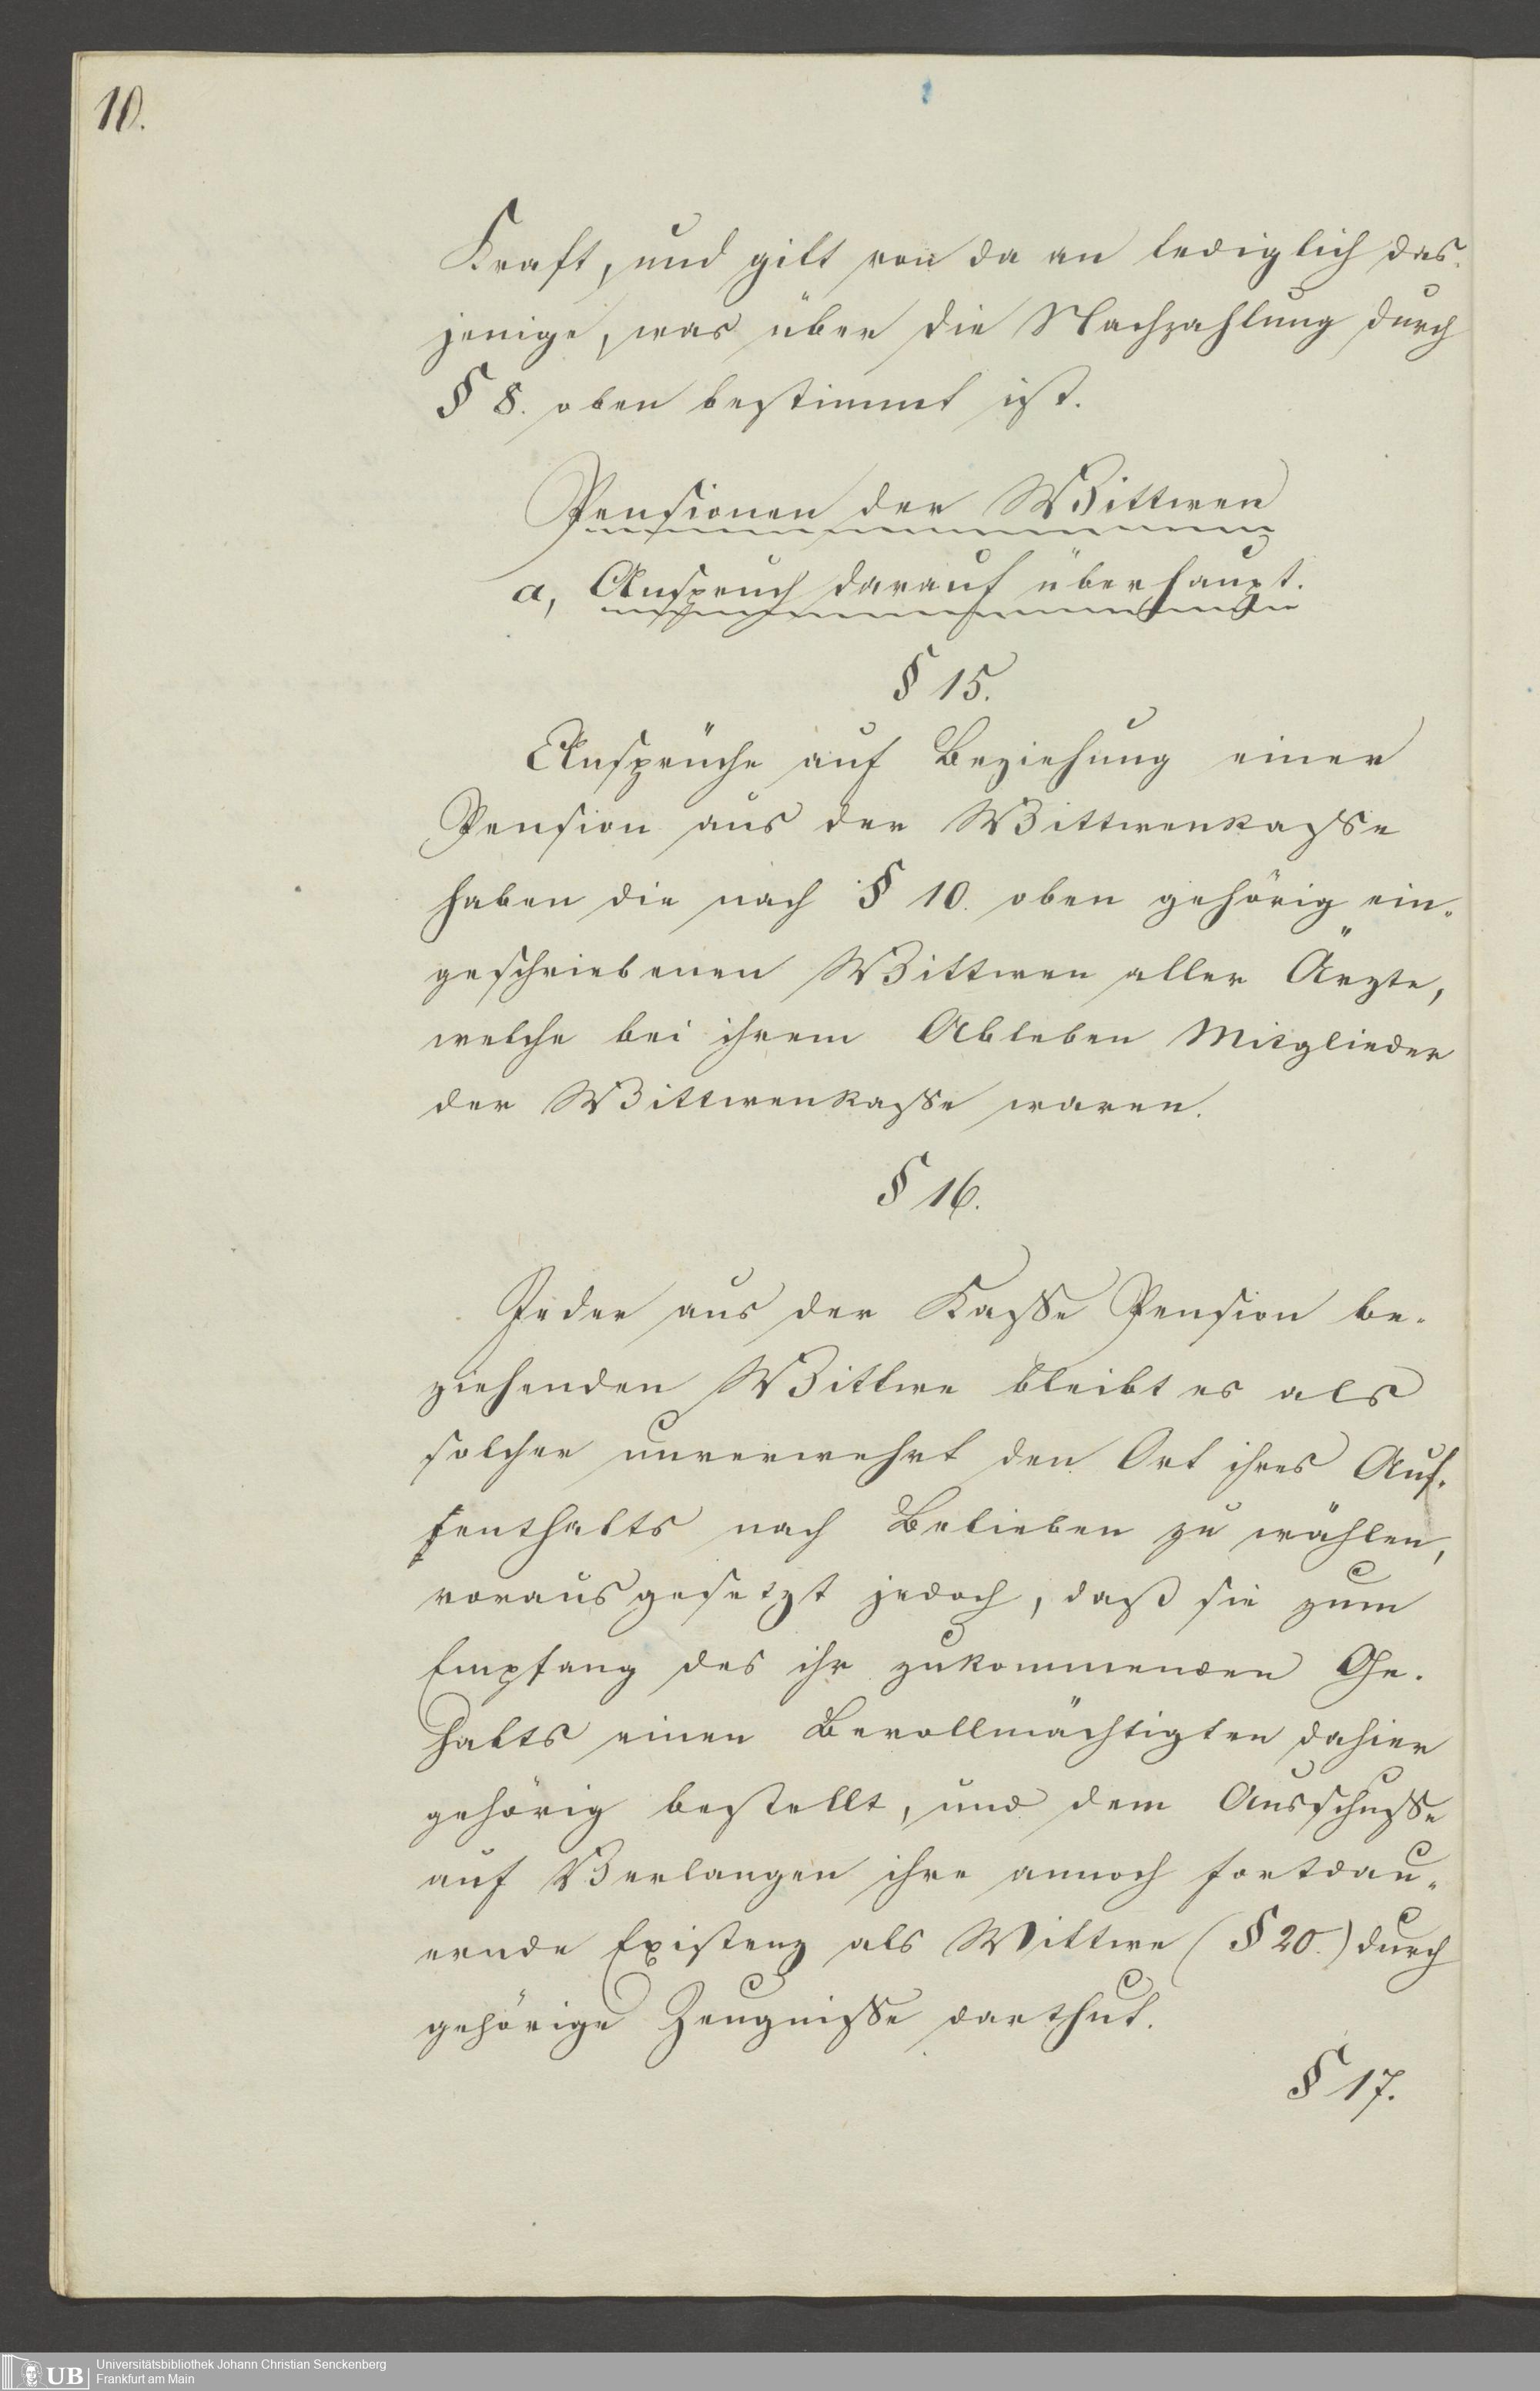 10.
Kraft, und gilt von da an lediglich das-
jenige, was über die Nachzahlung durch
§ 8. oben bestimmt ist.
Pensionen der Wittwen
a, Anspruch darauf überhaupt.
§ 15.
Ansprüche auf Beziehung einer
Pension aus der Wittwenkasse
haben die nach § 10. oben gehörig ein-
geschriebenen Wittwen aller Ärzte,
welche bei ihrem Ableben Mitglieder
der Wittwenkasse waren.
§ 16.
Jeder aus der Kasse Pension be-
ziehenden Wittwe bleibt es als
solcher unverwehrt den Ort ihres Auf-
enthalts nach Belieben zu wählen,
vorausgesetzt jedoch, daß sie zum
Empfang des ihr zukommenden Ge-
halts einen Bevollmächtigten dahier
gehörig bestellt, und dem Ausschusse
auf Verlangen ihre annoch fortdau-
ernde Existenz als Wittwe (§ 20.) durch
gehörige Zeugnisse darthut.
§ 17.
UB
Universitätsbibliothek Johann Christian Senckenberg
Frankfurt am Main